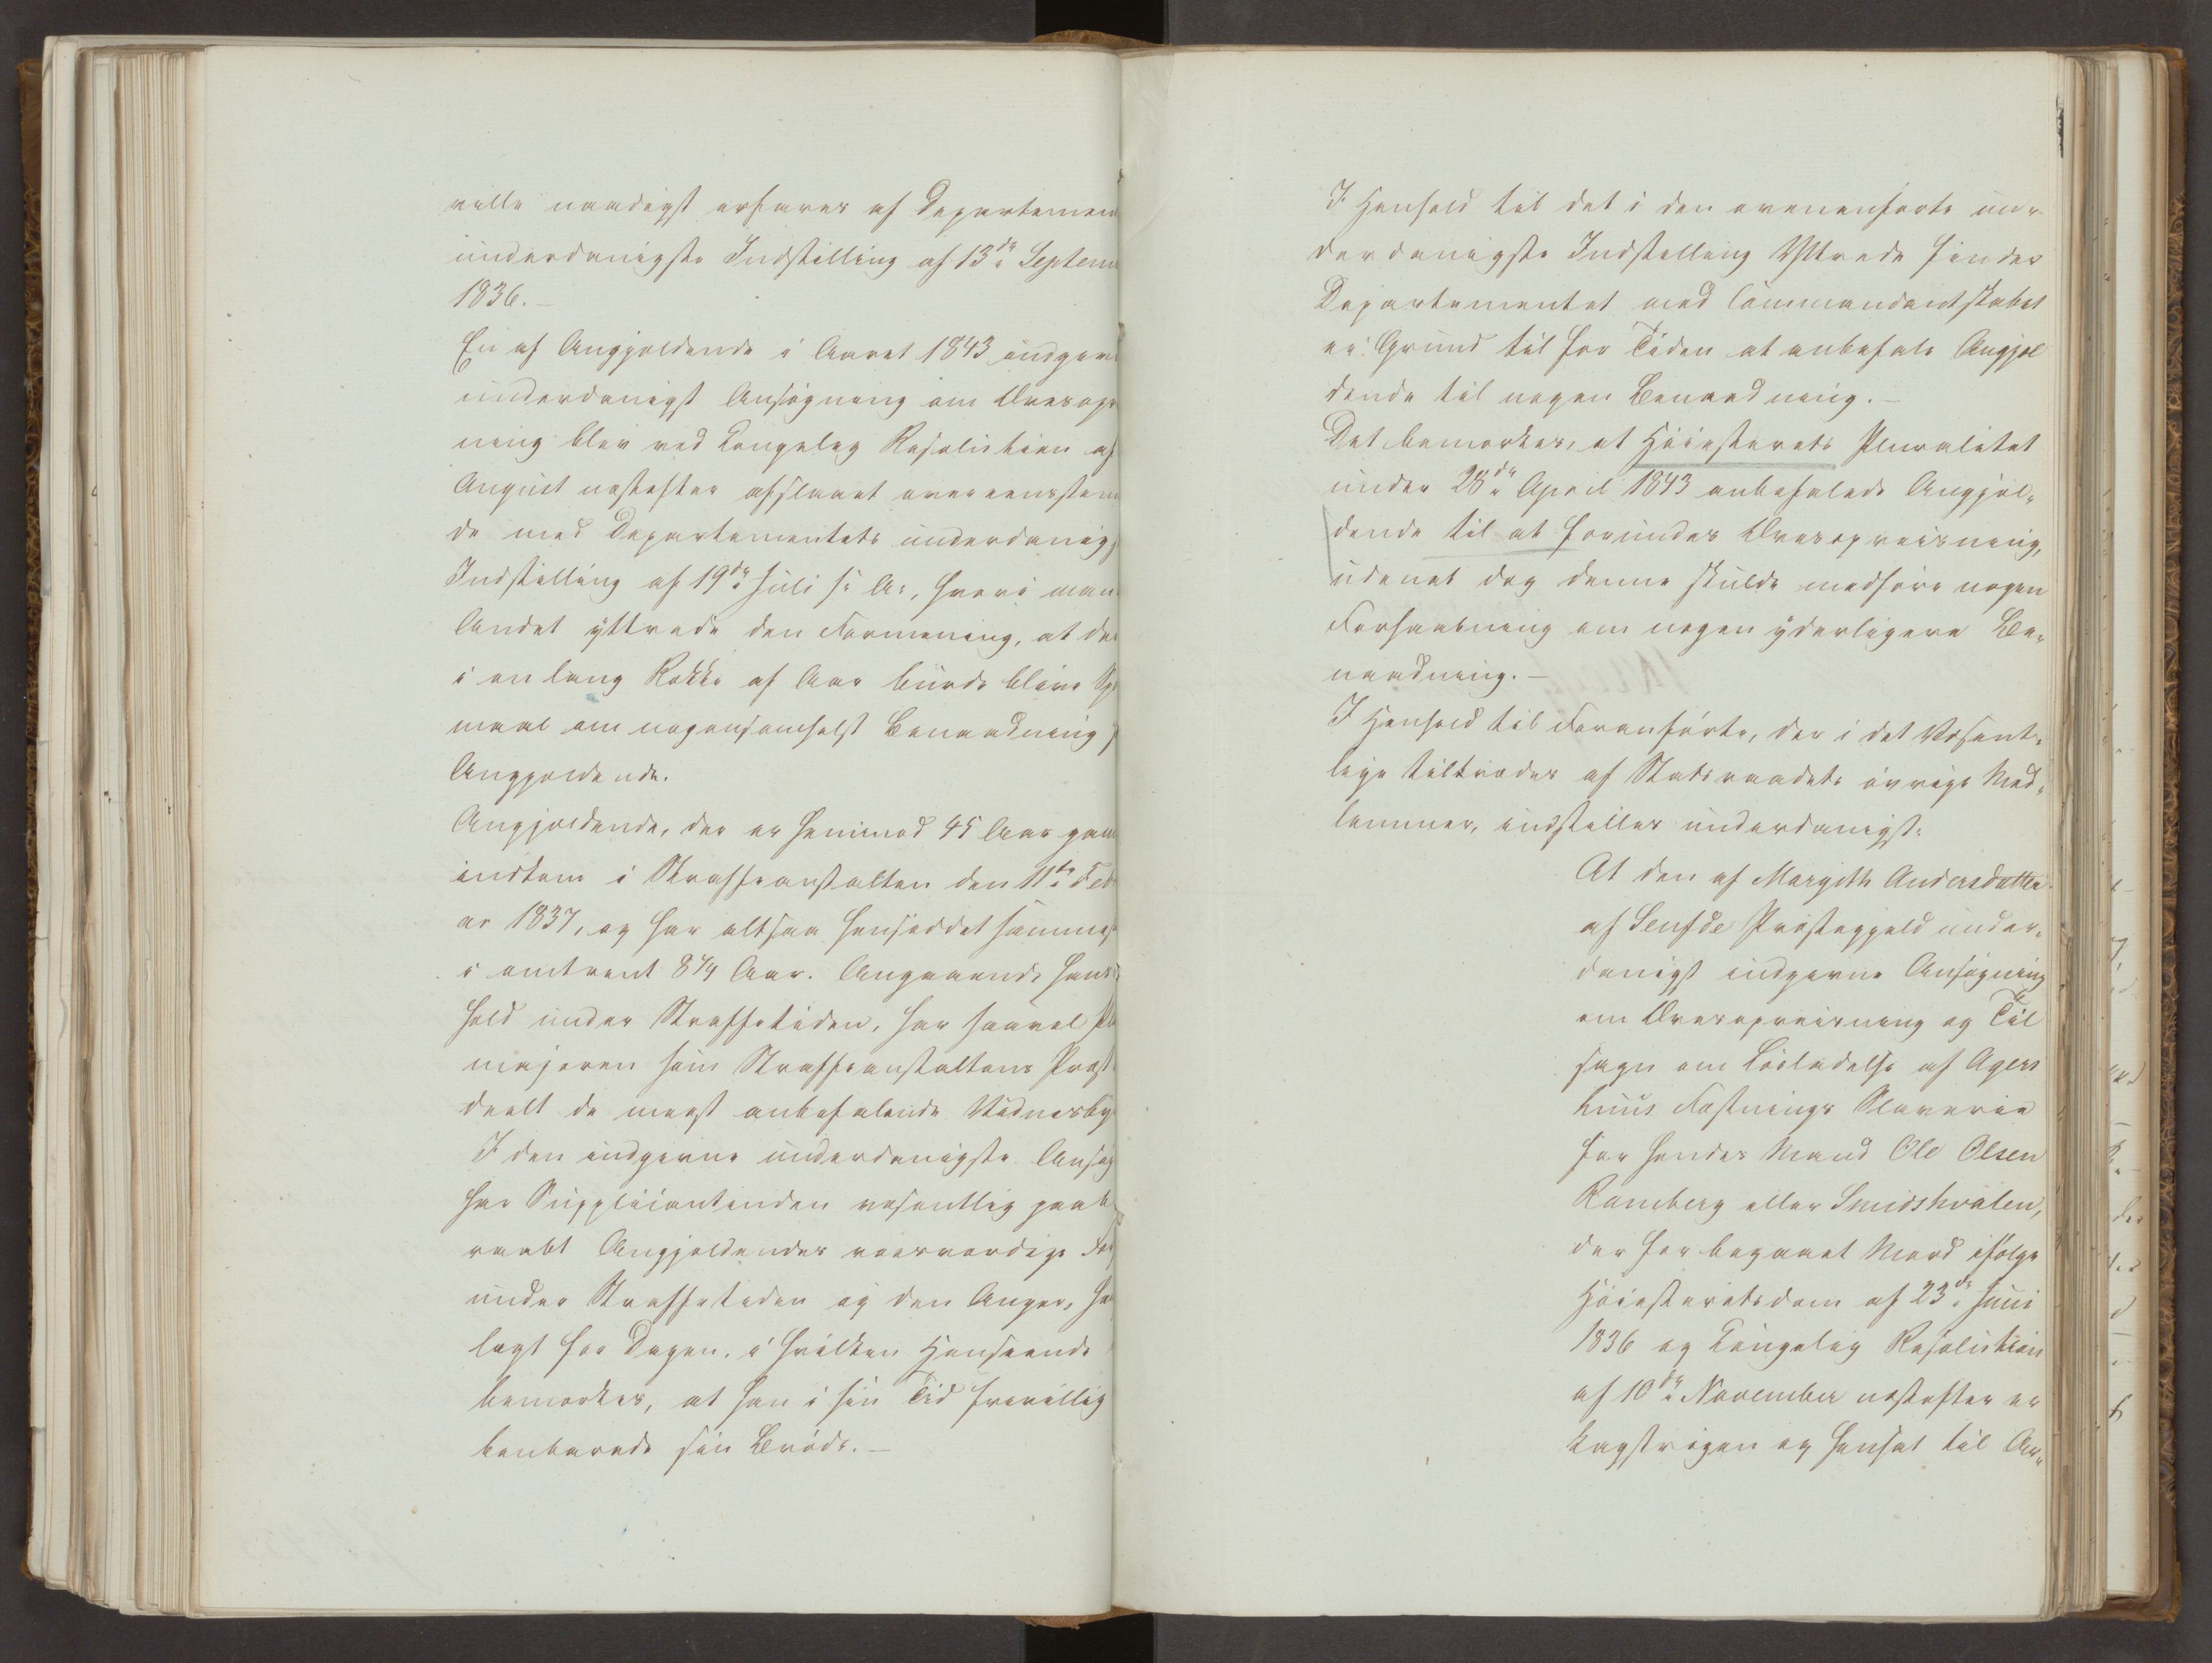 ville naadigst erfares af Departemen
underdanigste Indstilling af 13de Septem
1836.–
En af Angjældende i Aaret 1843 indgiven
underdanigst Ansøgning om Æresopr
ning blev ved Kongelig Resolution af
August næstefter afslaaet overeensstem
de med Departementets underdanig
Indstilling af 19de Juli s: A:, hvori man
Andet yttrede den Formening, at der
i en lang Række af Aar burde blive Sp
maal om nogensomhelst Benaadning f
Angjældende.
Angjældende, der er henimod 45 Aar gam
indkom i Strafanstalten den 11te Feb
ar 1837, og har altsaa hensiddet sammest
i omtrent 8¼ Aar. Angaaende hans
hold under Straffetiden, har saavel Pl
majoren som Straffeanstaltens Præst
deelt de meest anbefalende Vidnesby
I den indgivne underdanigste Ansøg
har Supplicantinden væsentlig paab
raabt Angjældendes roesværdige For
under Straffetiden og den Anger, ha
lagt for Dagen, i hvilken Henseende
bemærkes, at han i sin Tid frivillig
benbarede sin Brøde.–
I Henhold til det i den ovenanførte un-
derdanigste Indstilling Yttrede finder
Departementet med Commandantskabet
ei Grund til for Tiden at anbefale Angjæl
dende til nogen Benaadning.–
Det bemærkes, at Høiesterets Pluralitet
under 28de April 1843 anbefalede Angjæl-
dende til at forundes Æresopreisning,
udenat dog denne skulde medføre nogen
Forhaabning om nogen yderligere Be-
naadning.–
I Henhold til Foranførte, der i det Væsent-
lige tiltrædes af Statsraadets øvrige Med-
lemmer, indstilles underdanigst:
At den af Margith Andersdatter
af Senfde Præstegjeld under-
danigst indgivne Ansøgning
om Æresopreisning og Til
sagn om Løsladelse af Agers
huus Fæstnings Slaverie
for hendes Mand Ole Olsen
Ramberg eller Smidshvalen,
der for begaaet Mord ifølge
Høiesteretsdom af 23de Juni
1836 og Kongelig Resolution
af 10de November næstefter er
kagstrøgen og hensat til Ar-